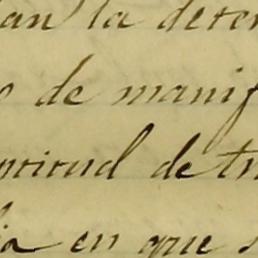 an la deter
o de manif
ptitud de tr
ia en que s